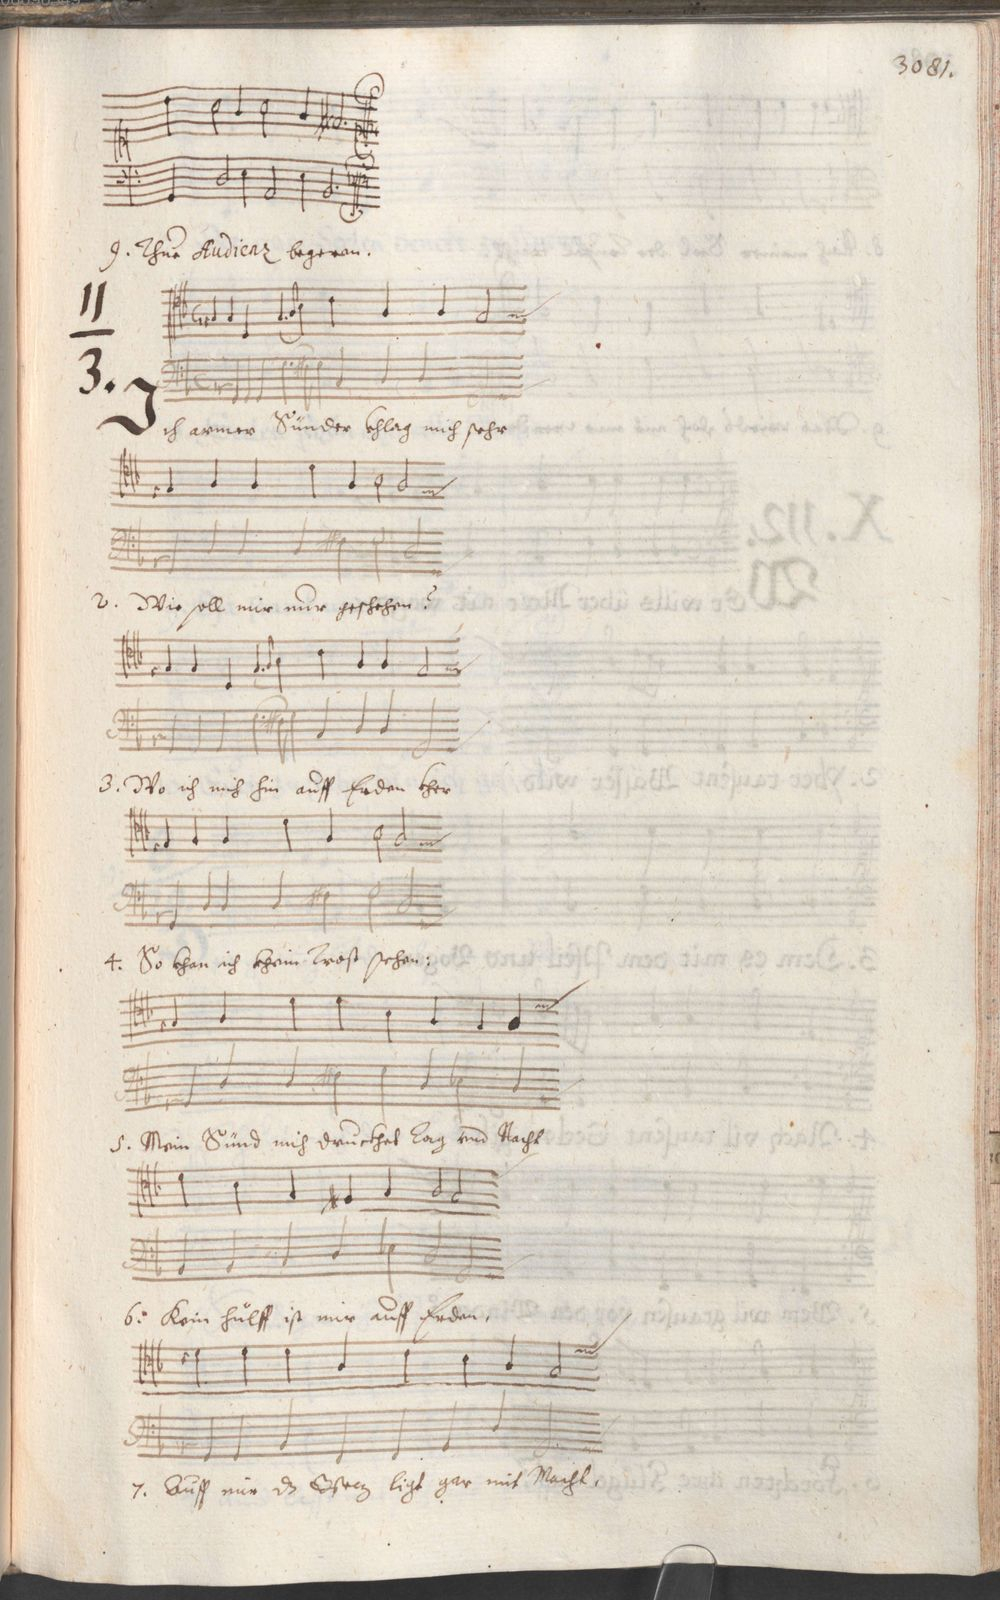 3081.
9. Thue Audienz begeren.
11
3.
Ich armer Sünder khlag mich sehr
2. Wie soll mir nur geschehen?
3. Wo ich mich hin auff Erden kher
4. So khan ich khein Trost sehen:
5. Mein Sünd mich druckhet Tag und Nacht
6. Kein hülff ist mir auff Erden,
7. Auff mir dz Gsetz ligt gar mit Macht,